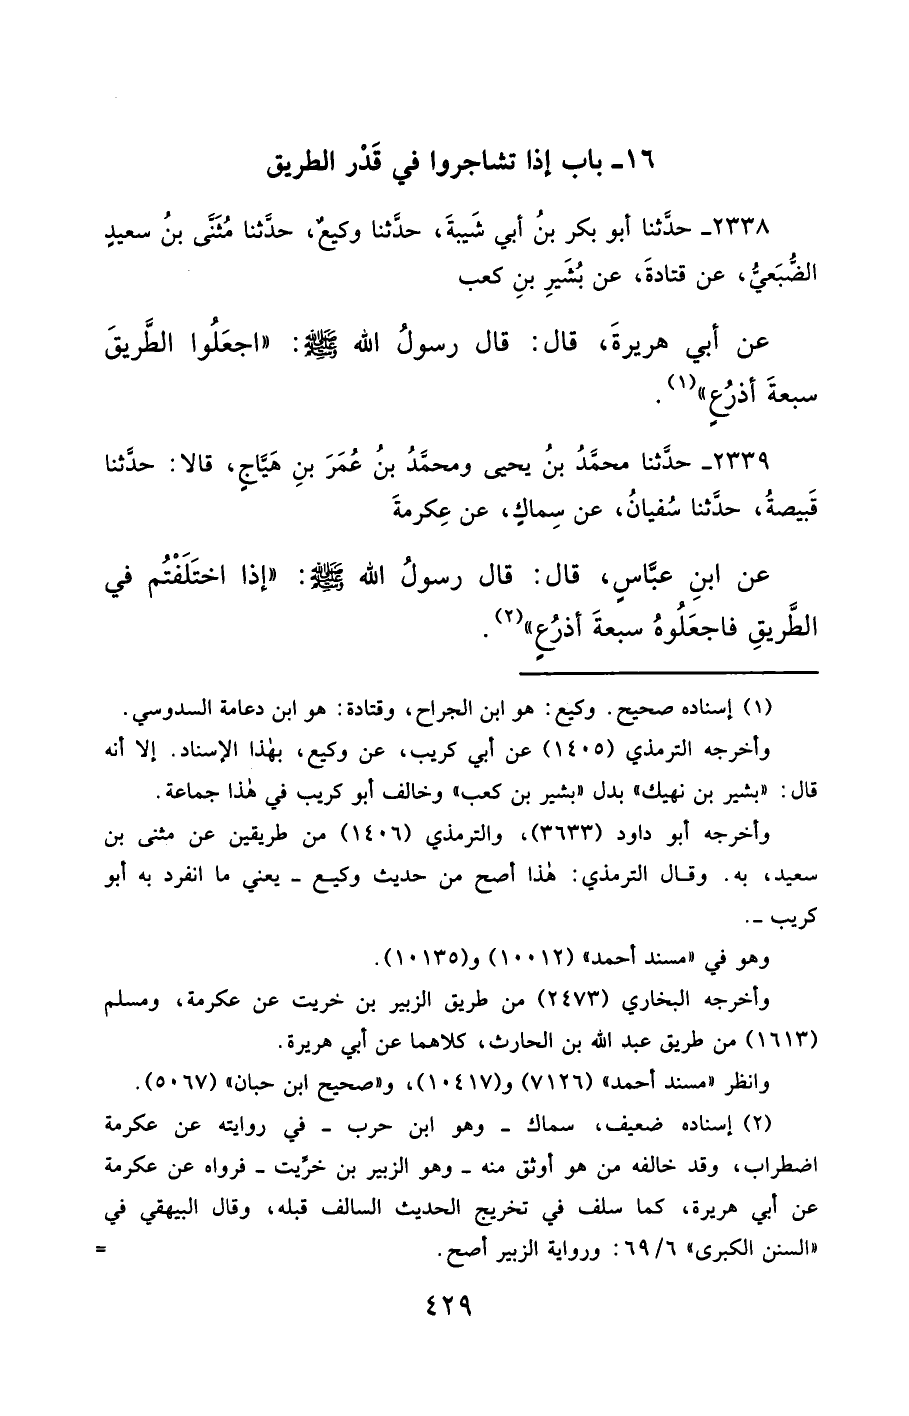 ١٦ـ باب إذا تشاجروا في قَدْر الطريق
٢٣٣٨ـ حدَّثنا أبو بكر بنُ أبي شَيبةَ، حدَّثنا وكيعٌ، حدَّثنا مُثَنَّى بنُ سعيدٍ
الضُّبَعيُّ، عن قتادةَ، عن بُشَيرِ بنِ كعب
عن أبي هريرةَ، قال: قال رسولُ الله ﷺ: «اجعَلُوا الطَّريقَ
سبعةَ أذرُعٍ»(١).
٢٣٣٩ـ حدَّثنا محمَّدُ بنُ يحيى ومحمَّدُ بنُ عُمَرَ بنِ هَيَّاجٍ، قالا: حدَّثنا
قَبيصةُ، حدَّثنا سُفيانُ، عن سِماكٍ، عن عِكرمةَ
عن ابنِ عبَّاسٍ، قال: قال رسولُ الله ﷺ: «إذا اختَلَفْتُم في
الطَّريقِ فاجعَلُوهُ سبعةَ أذرُعٍ»(٢).
(١) إسناده صحيح. وكيع: هو ابن الجراح، وقتادة: هو ابن دعامة السدوسي.
وأخرجه الترمذي (١٤٠٥) عن أبي كريب، عن وكيع، بهٰذا الإسناد. إلا أنه
قال: «بشير بن نهيك» بدل «بشير بن كعب» وخالف أبو كريب في هٰذا جماعة.
وأخرجه أبو داود (٣٦٣٣)، والترمذي (١٤٠٦) من طريقين عن مثنى بن
سعيد، به. وقال الترمذي: هٰذا أصح من حديث وكيع ـ يعني ما انفرد به أبو
كريب ـ.
وهو في «مسند أحمد» (١٠٠١٢) و(١٠١٣٥).
وأخرجه البخاري (٢٤٧٣) من طريق الزبير بن خريت عن عكرمة، ومسلم
(١٦١٣) من طريق عبد الله بن الحارث، كلاهما عن أبي هريرة.
وانظر «مسند أحمد» (٧١٢٦) و(١٠٤١٧)، و«صحيح ابن حبان» (٥٠٦٧).
(٢) إسناده ضعيف، سماك ـ وهو ابن حرب ـ في روايته عن عكرمة
اضطراب، وقد خالفه من هو أوثق منه ـ وهو الزبير بن خرِّيت ـ فرواه عن عكرمة
عن أبي هريرة، كما سلف في تخريج الحديث السالف قبله، وقال البيهقي في
«السنن الكبرى» ٦/ ٦٩: ورواية الزبير أصح. =
٤٢٩